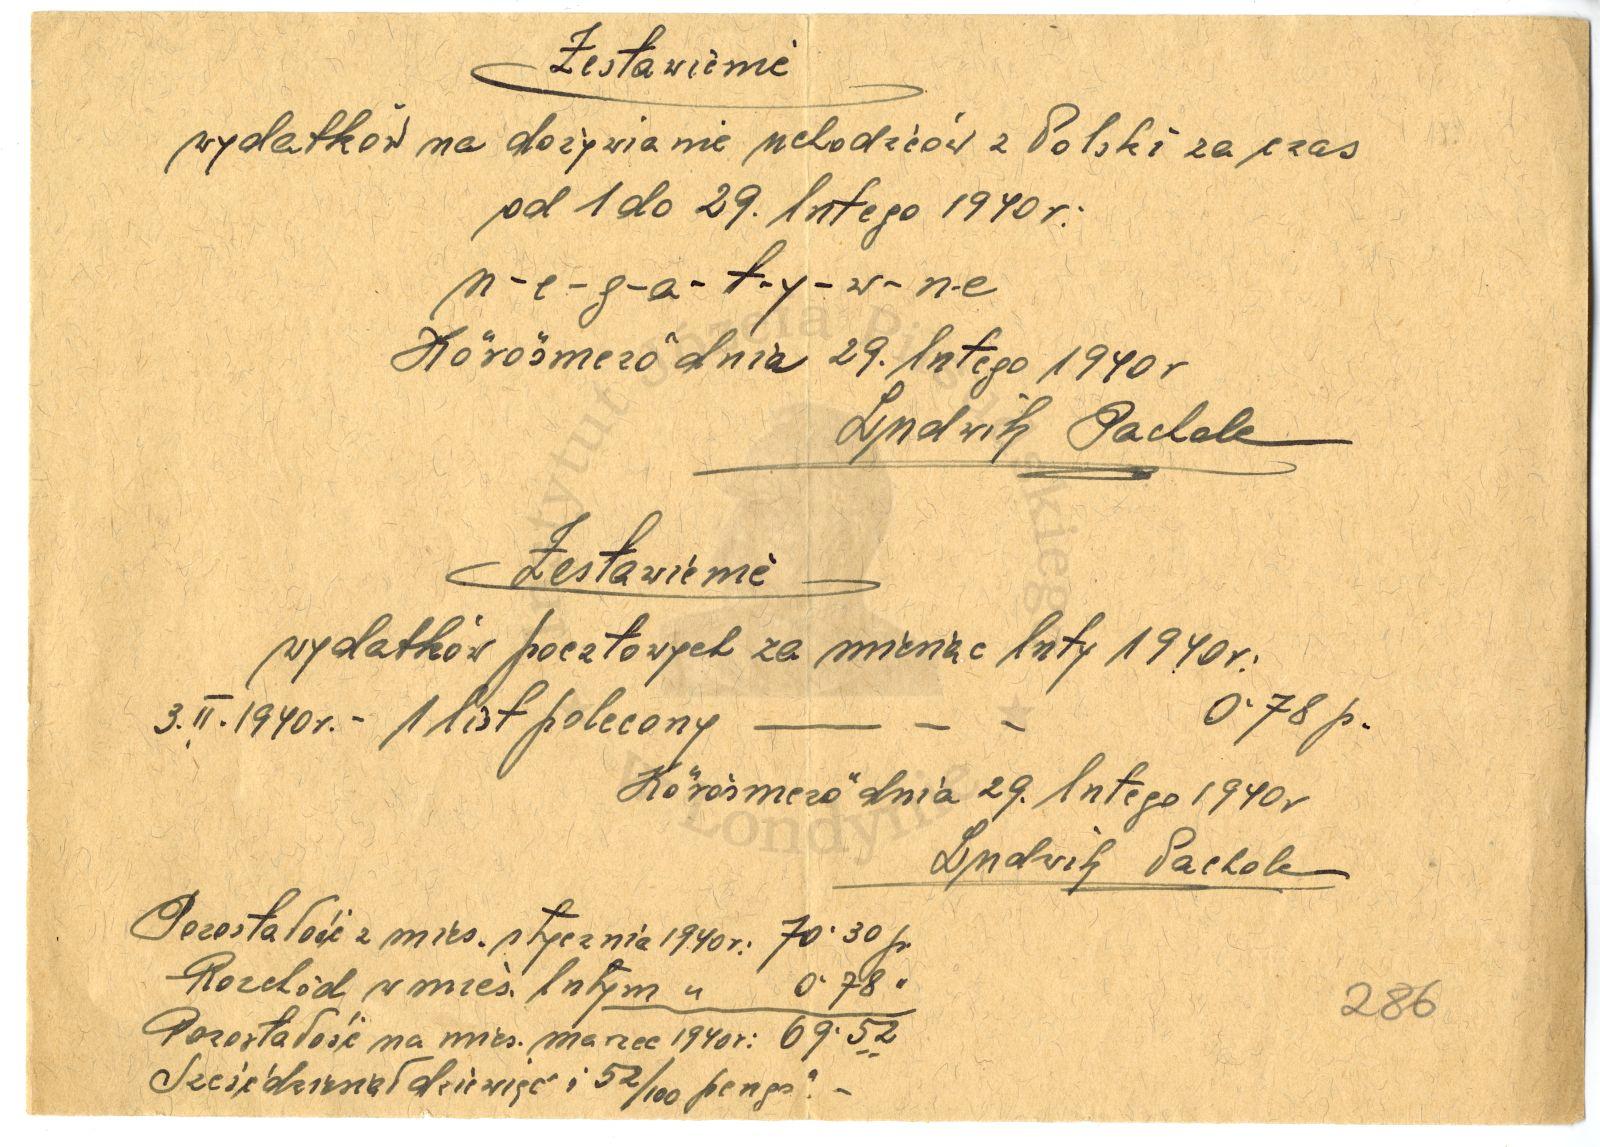 Zestawienie
wydatków na dożywianie uchodźców z Polski za czas
od 1 do 29. lutego 1940 r.
n-e-g-a-t-y-w-n-e
Körösmező dnia 29. lutego 1940 r
Ludwik Pachole
Zestawienie
wydatków pocztowych za miesiąc luty 1940 r.
3.II.1940 r. - 1 list polecony — - - 0·78 p.
Körösmező dnia 29. lutego 1940 r
Ludwik Pachole
Pozostałość z mies. stycznia 1940 r: 70·30 p.
Rozchód w mieś. lutym " 0·78 "
Pozostałość na mies. marzec 1940 r: 69·52
Sześćdziesiąt dziewięć i 52/100 pengő. -
286
Instytut Józefa Piłsudskiego
w Londynie